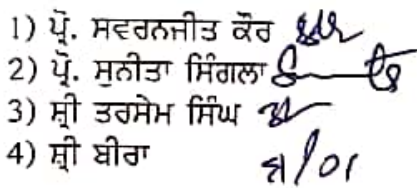 1) ਪ੍ਰੋ. ਸਵਰਨਜੀਤ ਕੌਰ
2) ਪ੍ਰੋ. ਸੁਨੀਤਾ ਸਿੰਗਲਾ
3) ਸ਼੍ਰੀ ਤਰਸੇਮ ਸਿੰਘ
4) ਸ਼੍ਰੀ ਬੀਰਾ